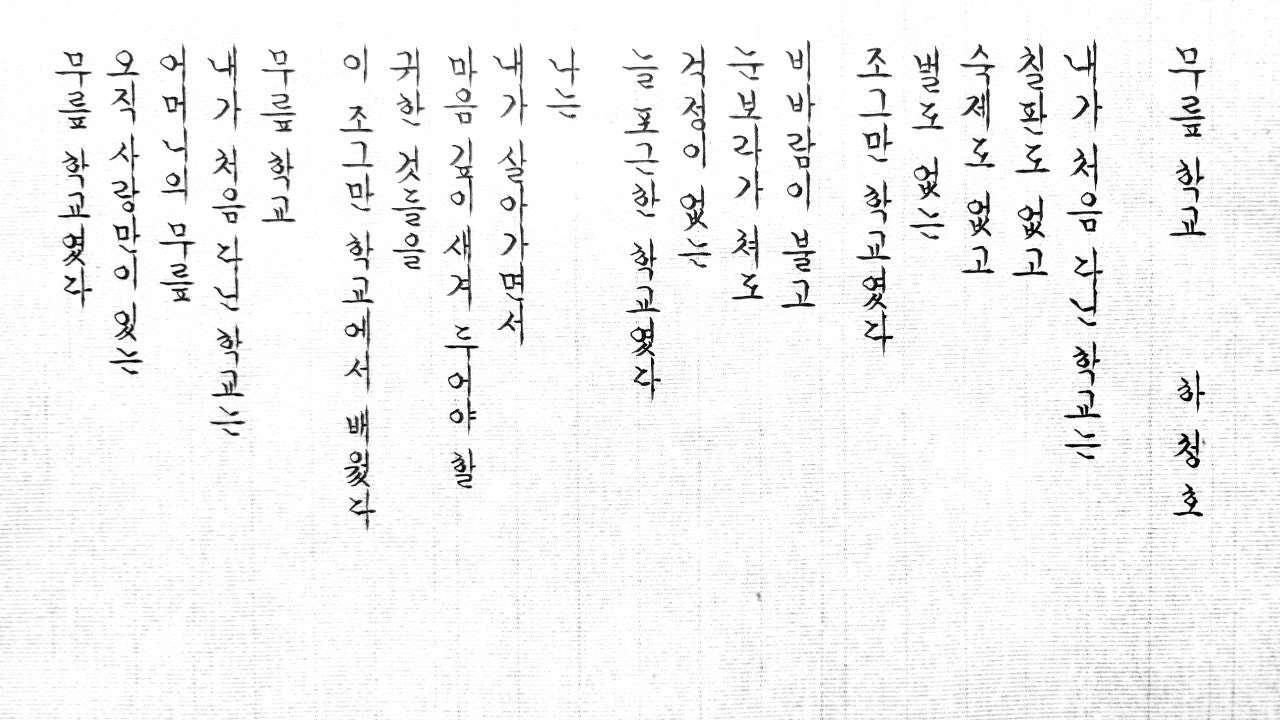 무릎 학교 하청호
내가 처음 다닌 학교는
칠판도 없고
숙제도 없고
벌도 없는
조그만 학교였다
비바람이 불고
눈보라가 쳐도
걱정이 없는
늘 포근한 학교였다
나는
내가 살아가면서
마음 깊이 새겨 두어야 할
귀한 것들을
이 조그만 학교에서 배웠다
무릎 학교
내가 처음 다닌 학교는
어머니의 무릎
오직 사랑만이 있는
무릎 학교였다